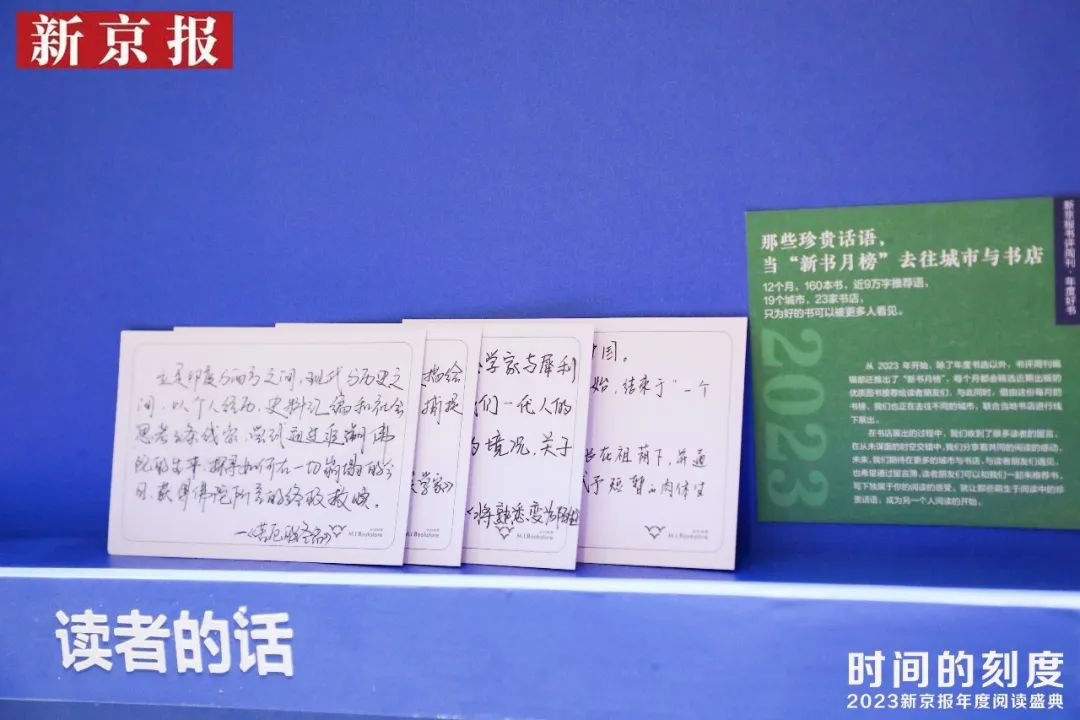 新京报
立足印度与西方之间,现代与历史之
间,以个人经历,史料汇编和社会
思考三条线索,尝试通过追溯佛
陀的生平,探寻如何在一切崩塌的今
日,获得佛陀所言的终极救赎。
M.I.Bookstore
描绘
捕捉
学家》
M.I.Bookstore
学家与犀利
们一代人的
境况,关于
《将熟悉变为陌生》
M.I.Bookstore
中国。
始,结束于"一个
在祖荫下,并通
予短暂的肉体生
M.I.Bookstore
新京报书评周刊·年度好书
那些珍贵话语,
当“新书月榜”去往城市与书店
12个月,160本书,近9万字推荐语,
19个城市,23家书店,
只为好的书可以被更多人看见。
2023
从 2023 年开始,除了年度书选以外,书评周刊编
辑部还推出了“新书月榜”,每个月都会精选近期出版的
优质图书推荐给读者朋友们。与此同时,借由这份每月的
书榜,我们也正在去往不同的城市,联合当地书店进行线
下展出。
在书店展出的过程中,我们收到了很多读者的留言,
在从未谋面的时空交错中,我们分享着共同的阅读的感动。
未来,我们期待在更多的城市与书店,与读者朋友们遇见,
也希望通过留言簿,读者朋友们可以和我们一起来推荐书,
写下独属于你的阅读的感受。就让那些萌生于阅读中的珍
贵话语,成为另一个人阅读的开始。
读者的话
时间的刻度
2023新京报年度阅读盛典